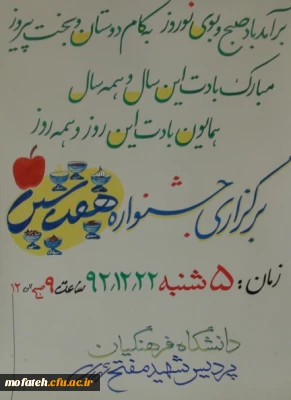 برآمد باد صبح و بوی نوروز بکام دوستان و بخت پیروز
مبارک بادت این سال و همه سال
همایون بادت این روز و همه روز
برگزاری جشنواره هفت سین
زمان: ۵ شنبه ۹۲/۱۲/۲۲ ساعت ۹ صبح الی ۱۲
دانشگاه فرهنگیان
پردیس شهید مفتح شهرری
mofateh.cfu.ac.ir